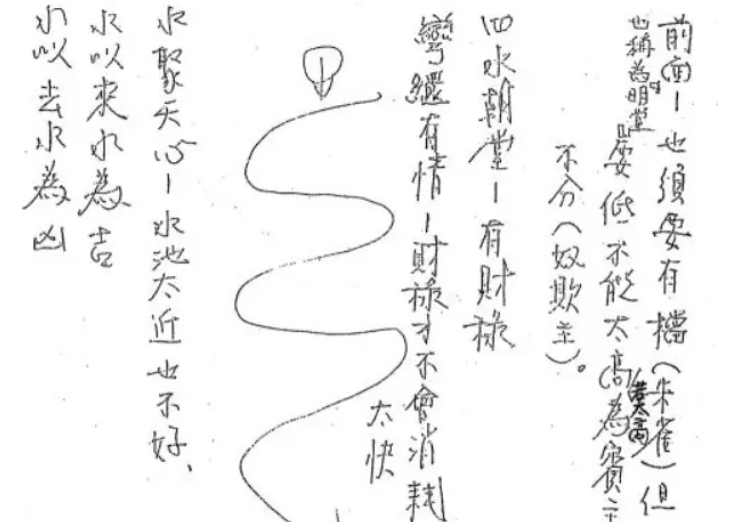 前面—也須要有檔(朱雀)但
也稱為明堂
要低不能太高為賓主
太高
不分(奴欺主)。
四水朝堂—有財祿
彎有情—財祿才不會消耗
太快
水聚天心—水池太近也不好、
水以來水為吉
水以去水為凶